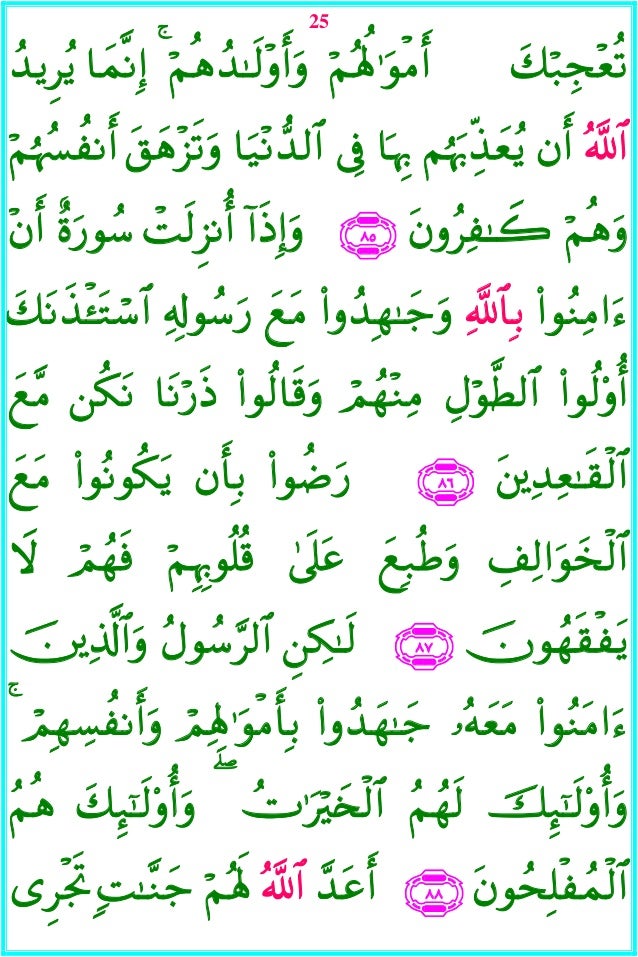 25
تُعْجِبْكَ أَمْوَٰلُهُمْ وَأَوْلَـٰدُهُمْ ۚ إِنَّمَا يُرِيدُ
ٱللَّهُ أَن يُعَذِّبَهُم بِهَا فِى ٱلدُّنْيَا وَتَزْهَقَ أَنفُسُهُمْ
وَهُمْ كَـٰفِرُونَ ٨٥ وَإِذَآ أُنزِلَتْ سُورَةٌ أَنْ
ءَامِنُوا۟ بِٱللَّهِ وَجَـٰهِدُوا۟ مَعَ رَسُولِهِ ٱسْتَـْٔذَنَكَ
أُو۟لُوا۟ ٱلطَّوْلِ مِنْهُمْ وَقَالُوا۟ ذَرْنَا نَكُن مَّعَ
ٱلْقَـٰعِدِينَ ٨٦ رَضُوا۟ بِأَن يَكُونُوا۟ مَعَ
ٱلْخَوَالِفِ وَطُبِعَ عَلَىٰ قُلُوبِهِمْ فَهُمْ لَا
يَفْقَهُونَ ٨٧ لَـٰكِنِ ٱلرَّسُولُ وَٱلَّذِينَ
ءَامَنُوا۟ مَعَهُۥ جَـٰهَدُوا۟ بِأَمْوَٰلِهِمْ وَأَنفُسِهِمْ ۚ
وَأُو۟لَـٰٓئِكَ لَهُمُ ٱلْخَيْرَٰتُ ۖ وَأُو۟لَـٰٓئِكَ هُمُ
ٱلْمُفْلِحُونَ ٨٨ أَعَدَّ ٱللَّهُ لَهُمْ جَنَّـٰتٍ تَجْرِى